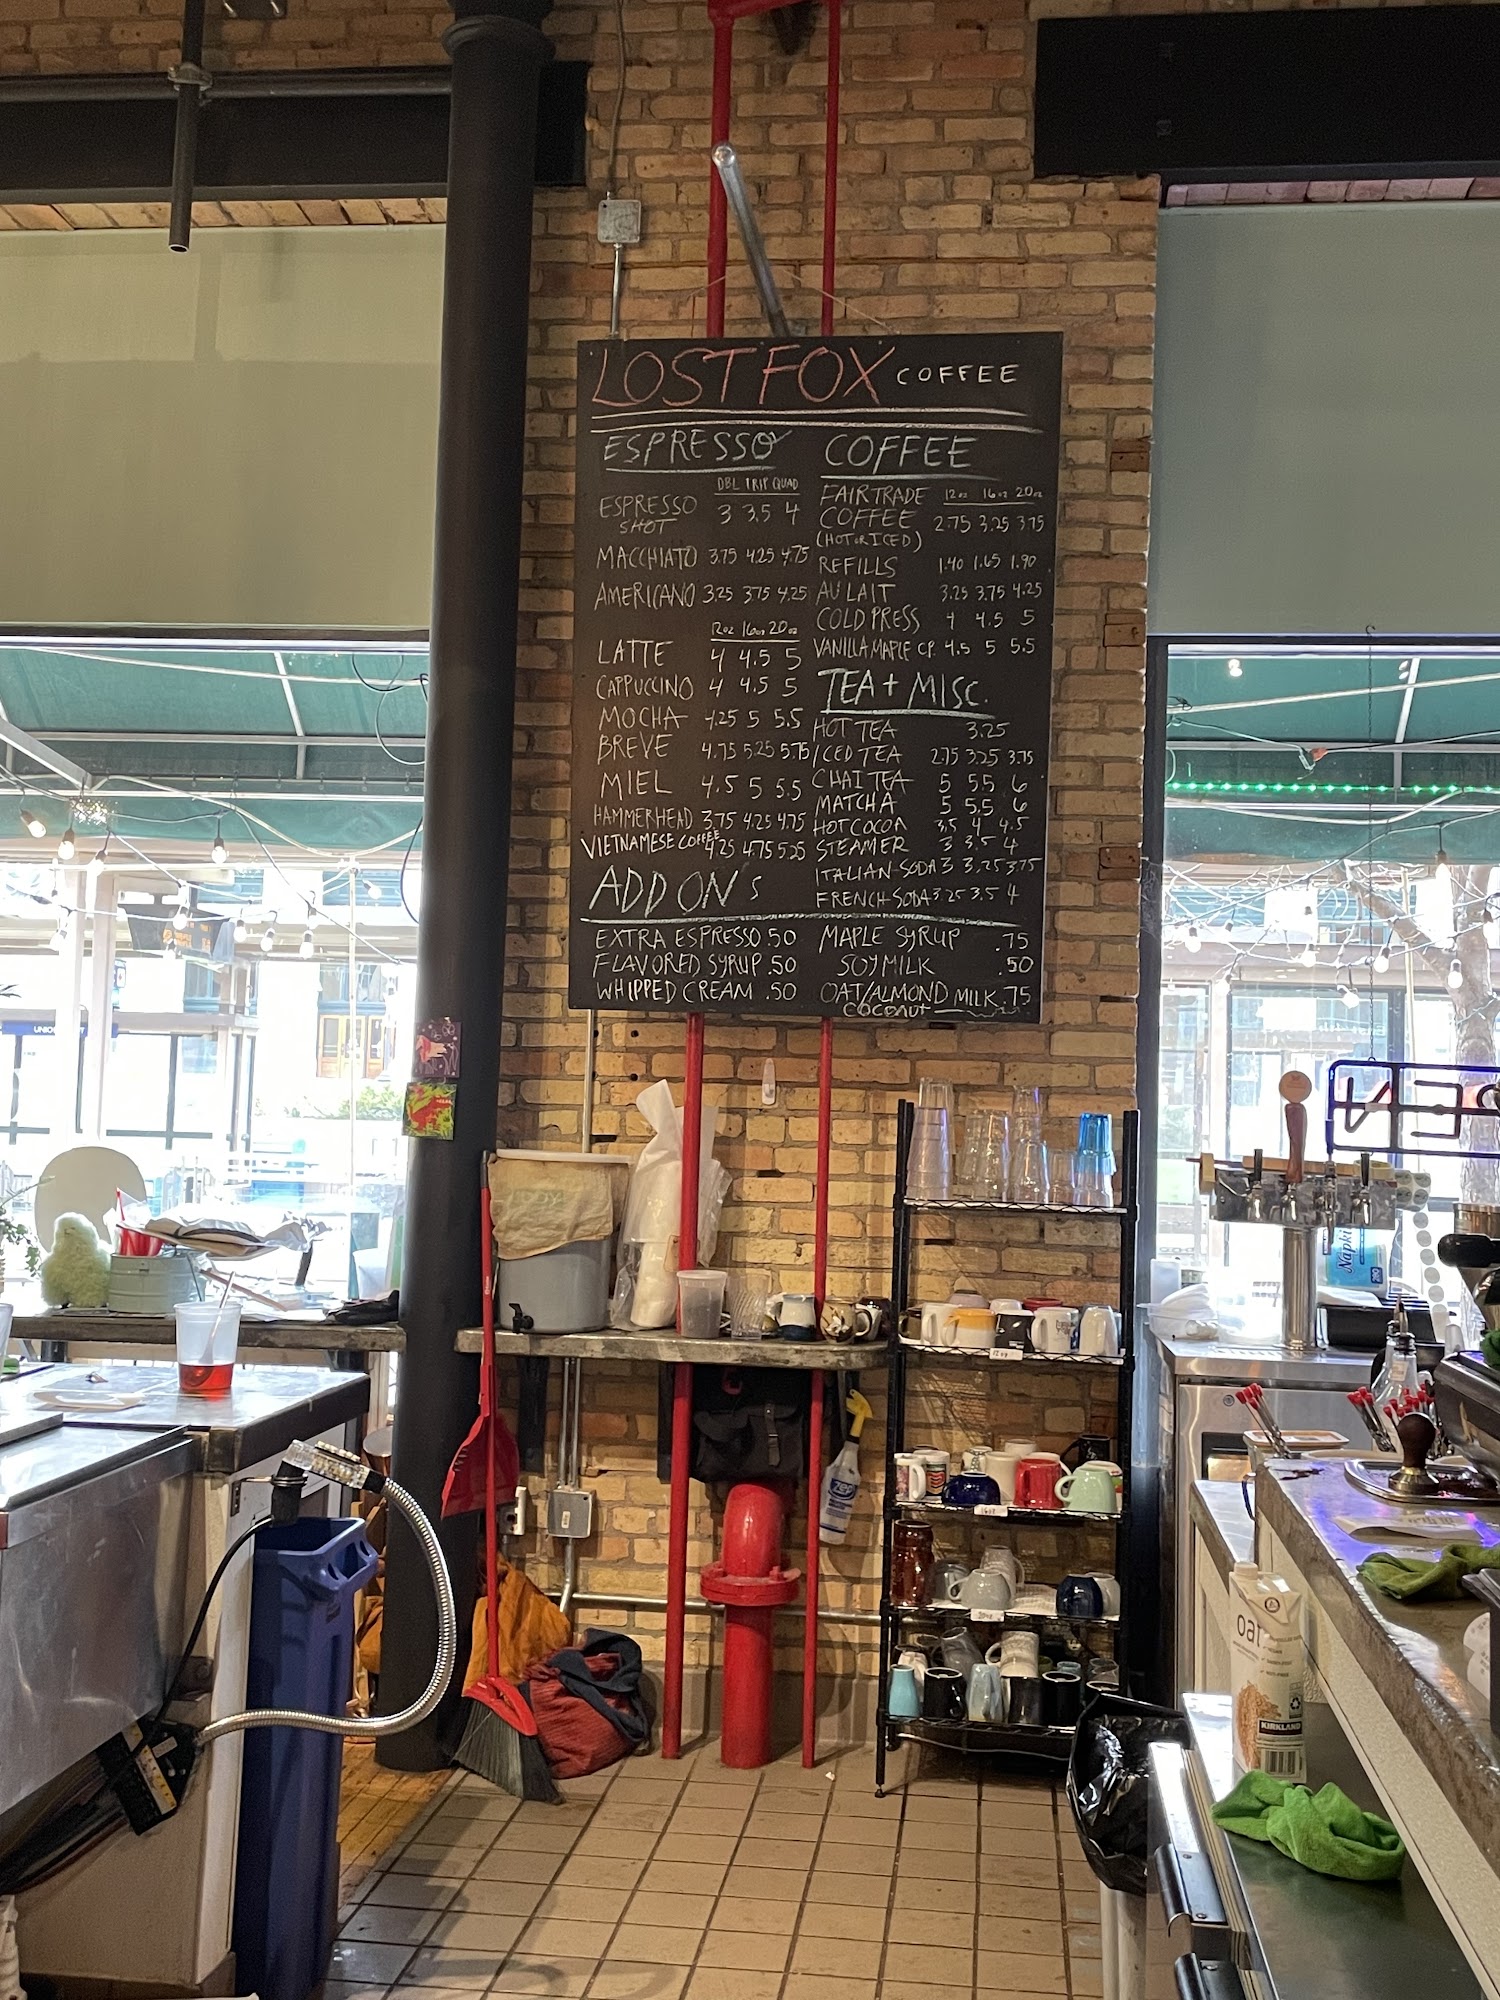 LOST FOX COFFEE
ESPRESSO
DBL TRIP QUAD
ESPRESSO SHOT 3 3.5 4
MACCHIATO 3.75 4.25 4.75
AMERICANO 3.25 3.75 4.25
12oz 16oz 20oz
LATTE 4 4.5 5
CAPPUCCINO 4 4.5 5
MOCHA 4.25 5 5.5
BREVE 4.75 5.25 5.75
MIEL 4.5 5 5.5
HAMMERHEAD 3.75 4.25 4.75
VIETNAMESE COFFEE 4.25 4.75 5.25
COFFEE
12oz 16oz 20oz
FAIRTRADE
COFFEE 2.75 3.25 3.75
(HOT OR ICED)
REFILLS 1.40 1.65 1.90
AU LAIT 3.25 3.75 4.25
COLD PRESS 4 4.5 5
VANILLA MAPLE CP. 4.5 5 5.5
TEA + MISC.
HOT TEA 3.25
ICED TEA 2.75 3.25 3.75
CHAI TEA 5 5.5 6
MATCHA 5 5.5 6
HOT COCOA 3.5 4 4.5
STEAMER 3 3.5 4
ITALIAN SODA 3 3.25 3.75
FRENCH SODA 3.25 3.5 4
ADD ON'S
EXTRA ESPRESSO .50
FLAVORED SYRUP .50
WHIPPED CREAM .50
MAPLE SYRUP .75
SOY MILK .50
OAT/ALMOND MILK .75
COCONUT
UNION
Napki
ZEP
oat
KIRKLAND